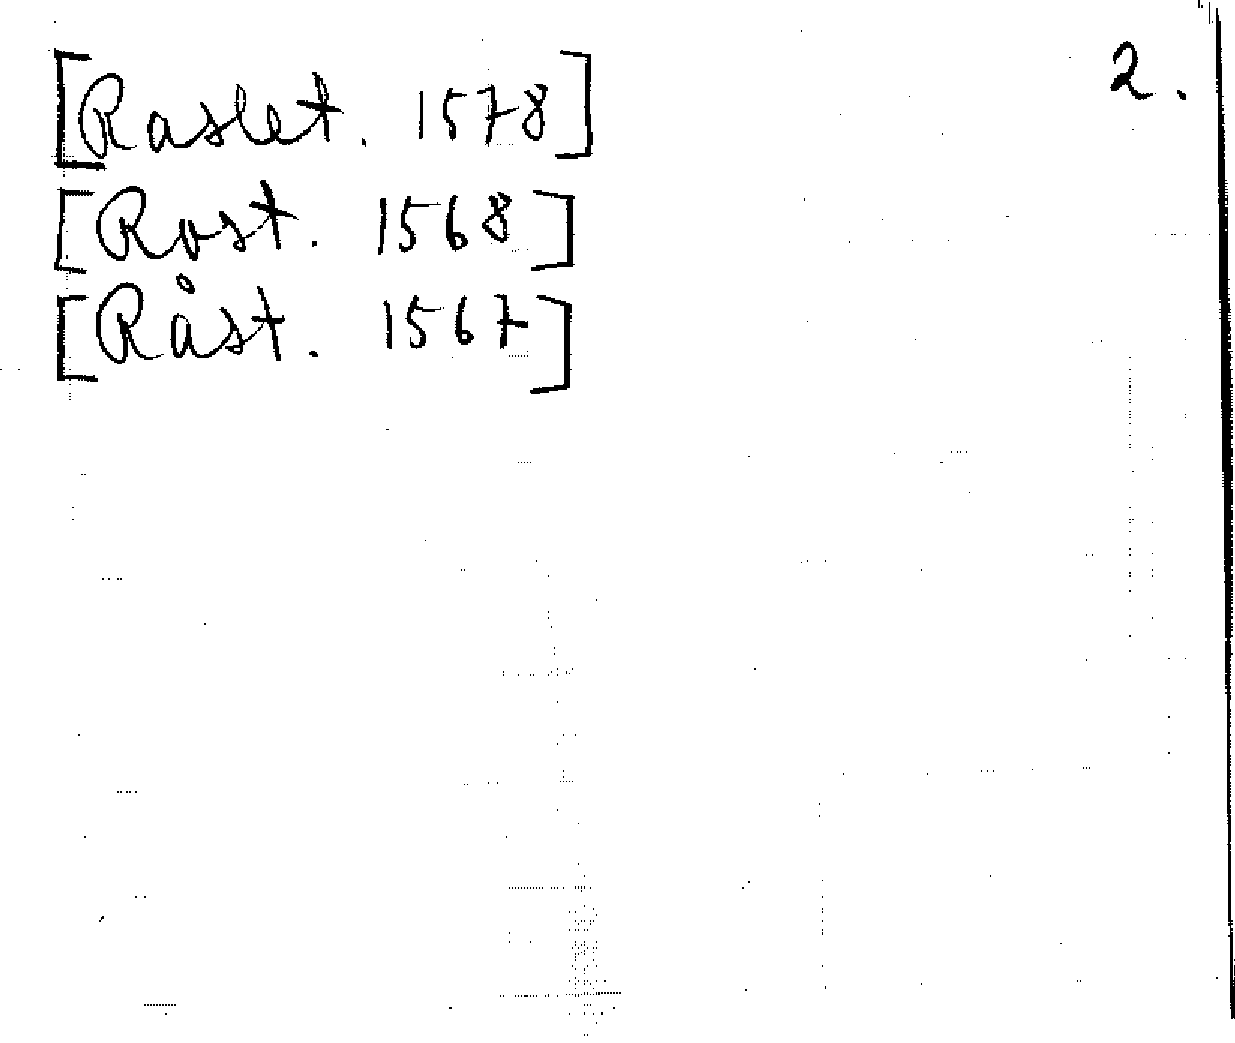 2.
[Raslet. 1578]
[Rast. 1568]
[Råst. 1567]